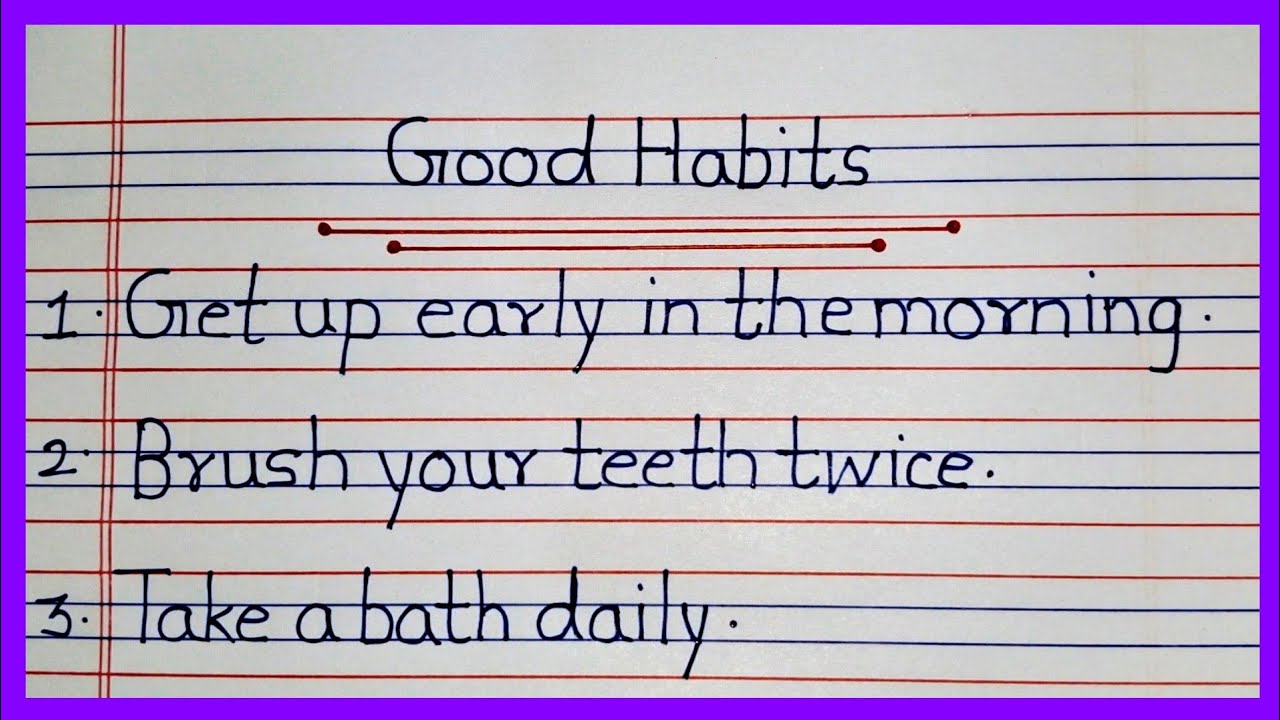 Good Habits
1. Get up early in the morning.
2. Brush your teeth twice.
3. Take a bath daily.